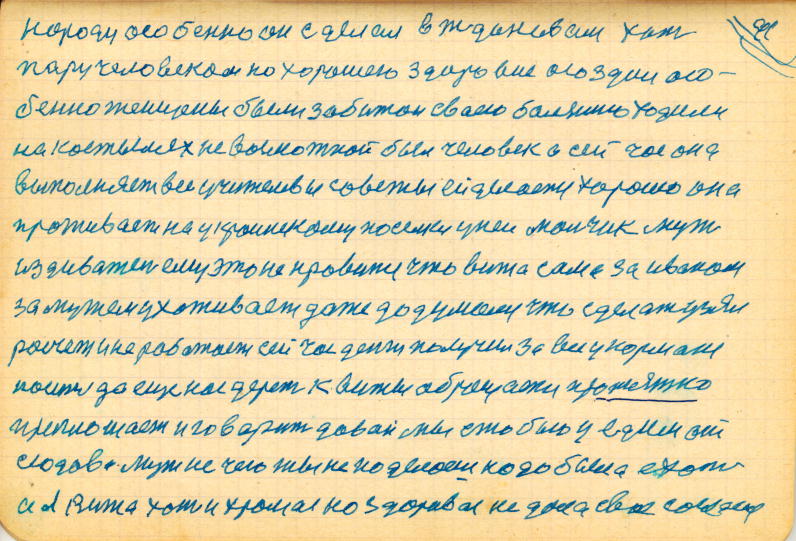 народу особенно он сделал в Жданивам хотя
пару человеком но хорошею здоровие создал осо-
бенно женщены были забытои сваею болезнию ходили
на костылях не возможной был человек а сей час она
выполняет все учителевы советы ей делает хорошо она
проживает на украинскому поселки у неи мальчик муж
издивается ему это не нравитц что вита сама за иваном
замужем ухаживает даже додумали что сделат узяли
росчет и не работает сей час денги получил за вси у кормане
да еще нас держ к виты обращается приятно
преглошает и говарит давай мы стобою уедем от
сюдова муж не чего ты не поделаеш надо была
Вита хот и хромая но здоровая не дала свое